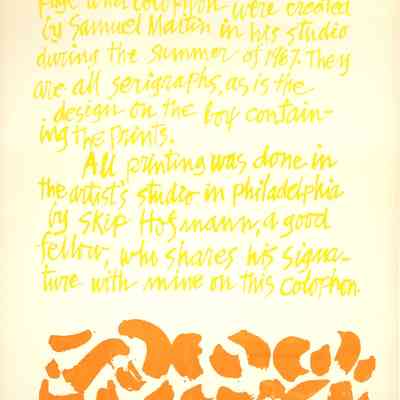 page and colophon were created
by Samuel Maitin in his studio
during the summer of 1967. They
are all serigraphs, as is the
design on the box contain-
ing the prints.
All printing was done in
the artist's studio in philadelphia
by Skip Hofmann, a good
fellow, who shares his signa-
ture with mine on this colophon.